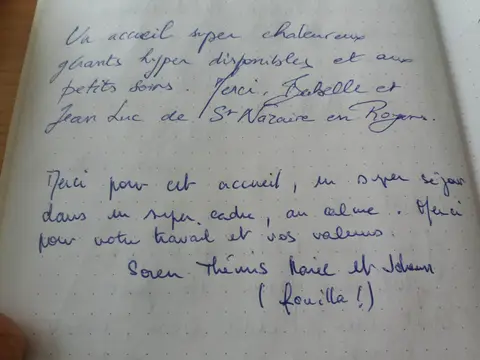 Un accueil super chaleureux
gérants hyper disponibles et aux
petits soins. Merci, Isabelle et
Jean Luc de St Nazaire en Royans.
Merci pour cet accueil, un super séjour
dans un super cadre, au calme. Merci
pour votre travail et vos valeurs.
Soren Thémis Marie et Johann
(fouilla!)